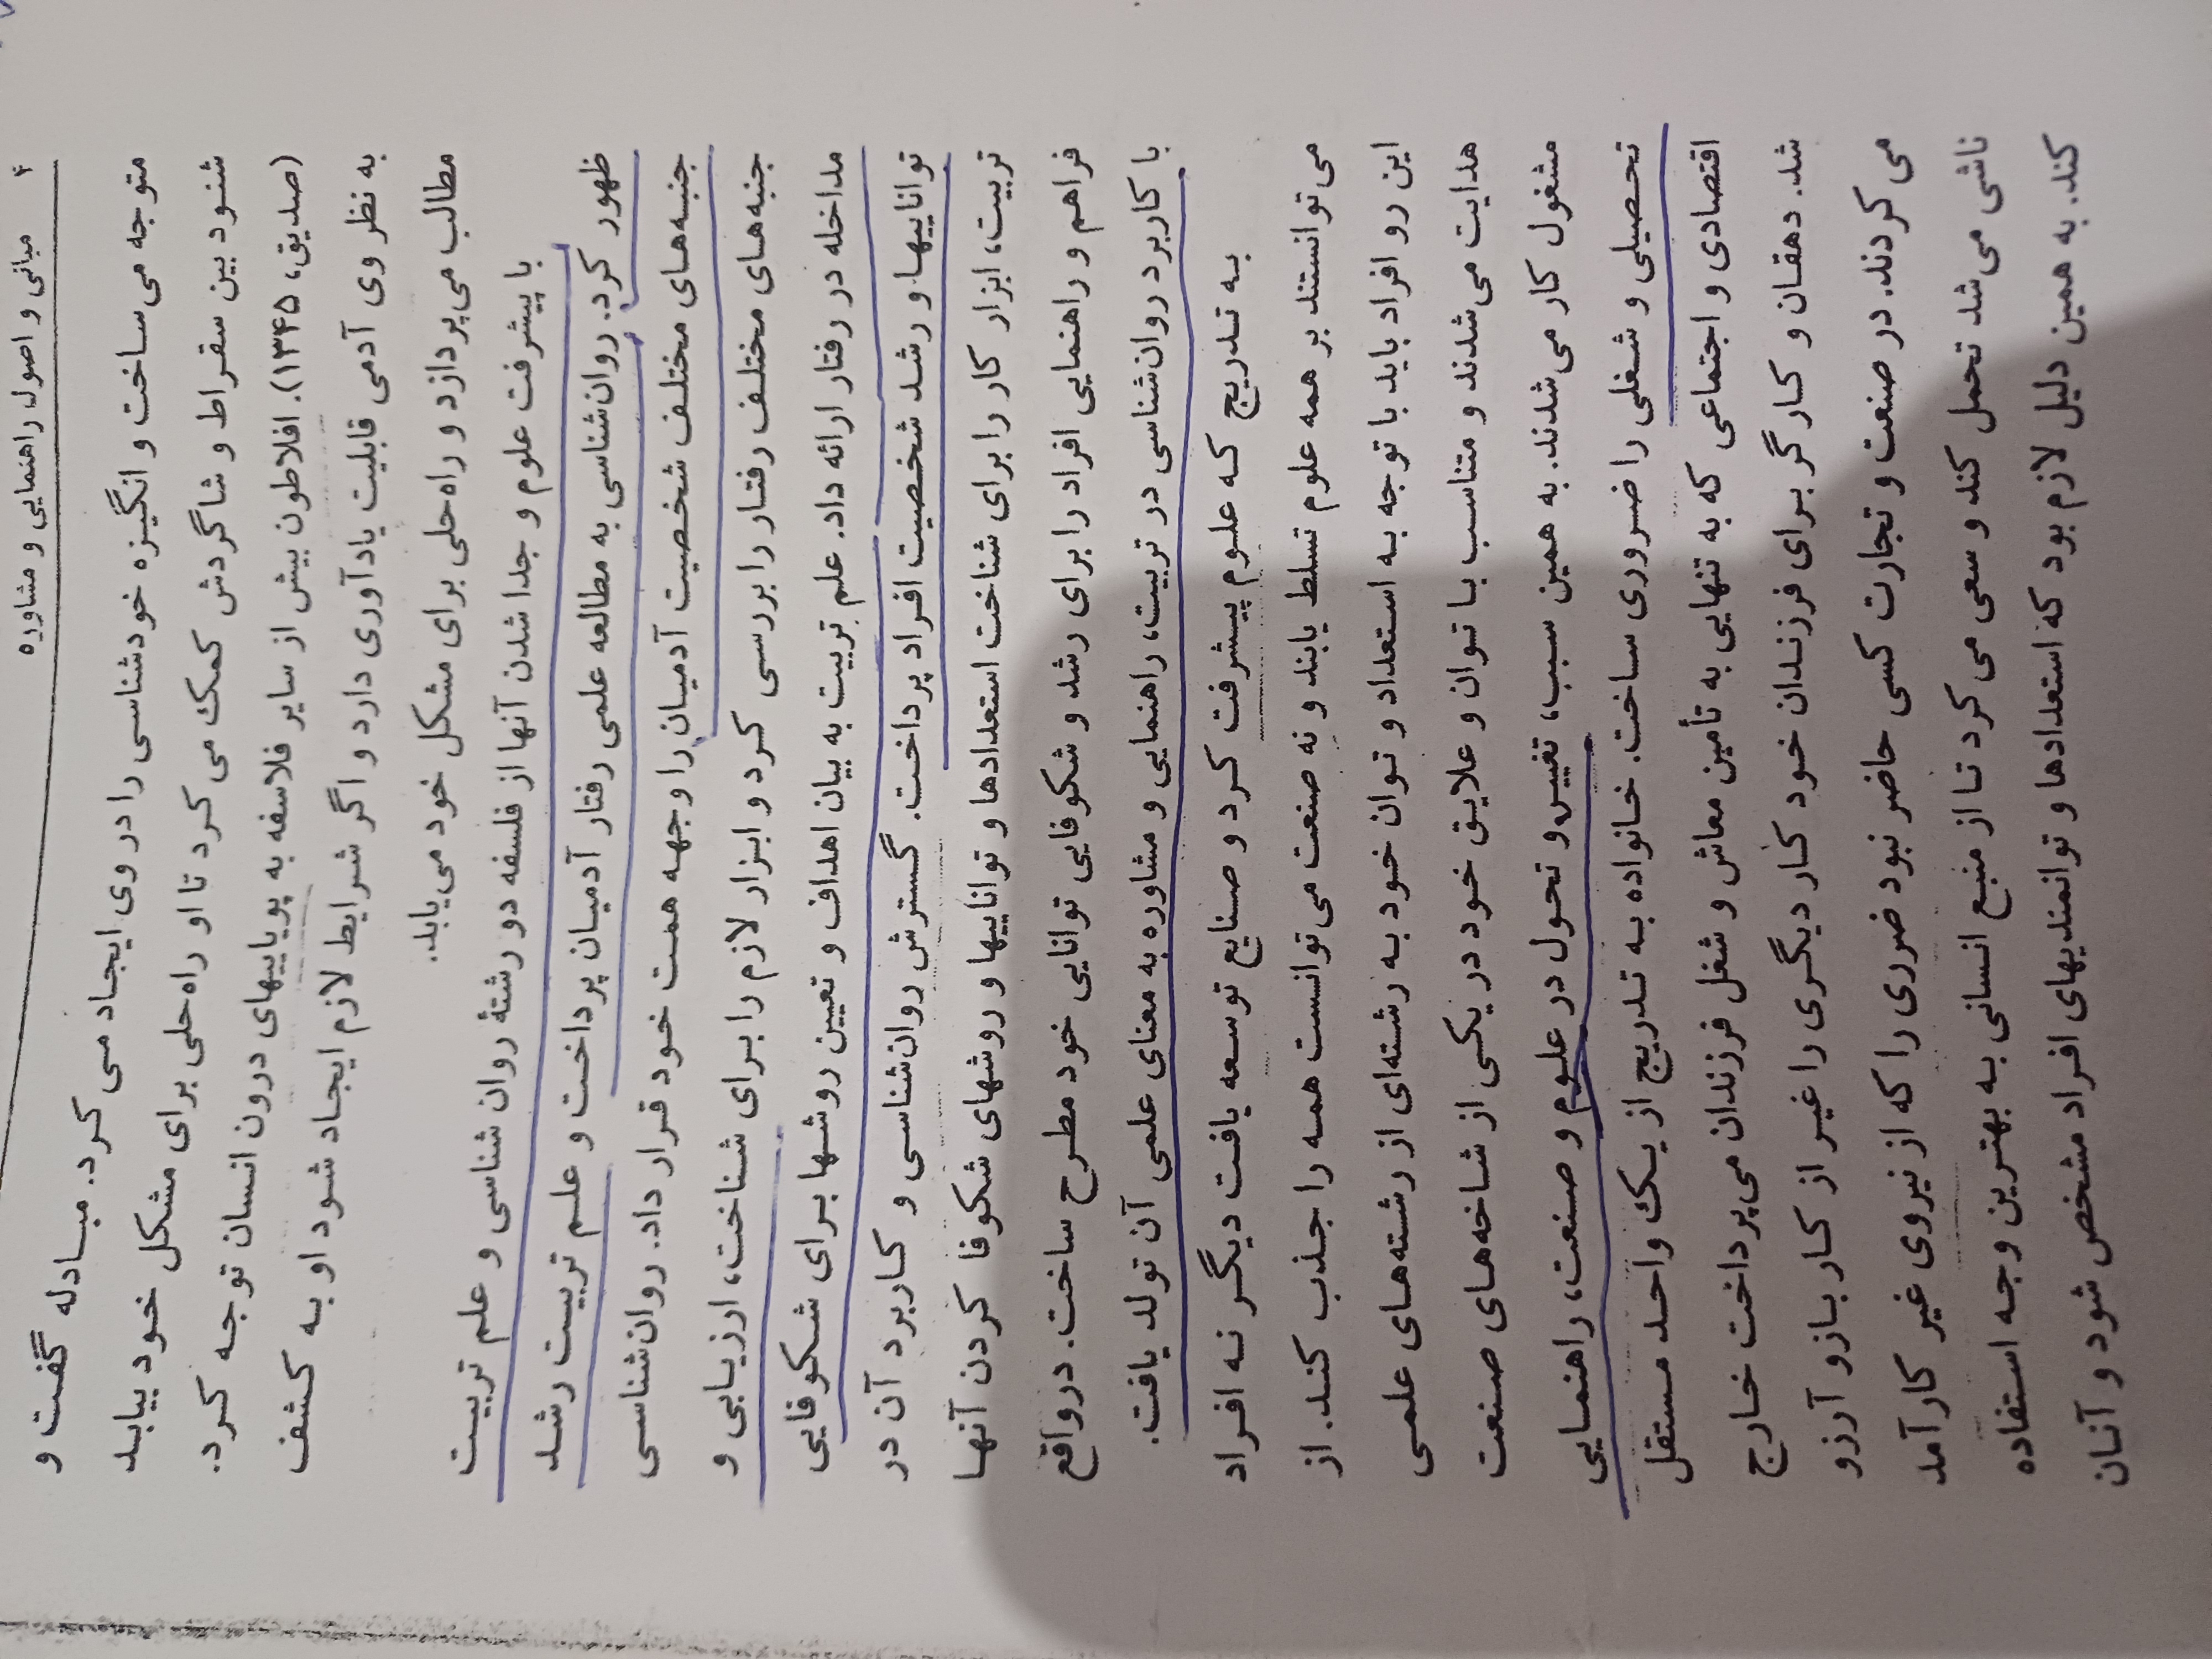 ۴ مبانی و اصول راهنمایی و مشاوره
متوجه می‌ساخت و انگیزه خودشناسی را در وی ایجاد می‌کرد. مبادله گفت و
شنود بین سقراط و شاگردش کمک می‌کرد تا او راه‌حلی برای مشکل خود بیابد
(صدیق، ۱۳۴۵). افلاطون بیش از سایر فلاسفه به پویاییهای درون انسان توجه کرد.
به نظر وی آدمی قابلیت یادآوری دارد و اگر شرایط لازم ایجاد شود او به کشف
مطالب می‌پردازد و راه‌حلی برای مشکل خود می‌یابد.
با پیشرفت علوم و جدا شدن آنها از فلسفه دو رشتهٔ روان شناسی و علم تربیت
ظهور کرد. روان‌شناسی به مطالعه علمی رفتار آدمیان پرداخت و علم تربیت رشد
جنبه‌های مختلف شخصیت آدمیان را وجهه همت خود قرار داد. روان‌شناسی
جنبه‌های مختلف رفتار را بررسی کرد و ابزار لازم را برای شناخت، ارزیابی و
مداخله در رفتار ارائه داد. علم تربیت به بیان اهداف و تعیین روشها برای شکوفایی
تواناییها و رشد شخصیت افراد پرداخت. گسترش روان‌شناسی و کاربرد آن در
تربیت، ابزار کار را برای شناخت استعدادها و تواناییها و روشهای شکوفا کردن آنها
فراهم و راهنمایی افراد را برای رشد و شکوفایی توانایی خود مطرح ساخت. درواقع
با کاربرد روان‌شناسی در تربیت، راهنمایی و مشاوره به معنای علمی آن تولد یافت.
به تدریج که علوم پیشرفت کرد و صنایع توسعه یافت دیگر نه افراد
می‌توانستند بر همه علوم تسلط یابند و نه صنعت می‌توانست همه را جذب کند. از
این رو افراد باید با توجه به استعداد و توان خود به رشته‌ای از رشته‌های علمی
هدایت می‌شدند و متناسب با توان و علایق خود در یکی از شاخه‌های صنعت
مشغول کار می‌شدند. به همین سبب، تغییر و تحول در علوم و صنعت، راهنمایی
تحصیلی و شغلی را ضروری ساخت. خانواده به تدریج از یک واحد مستقل
اقتصادی و اجتماعی که به تنهایی به تأمین معاش و شغل فرزندان می‌پرداخت خارج
شد. دهقان و کارگر برای فرزندان خود کار دیگری را غیر از کار بازو آرزو
می‌کردند. در صنعت و تجارت کسی حاضر نبود ضرری را که از نیروی غیر کارآمد
ناشی می‌شد تحمل کند و سعی می‌کرد تا از منبع انسانی به بهترین وجه استفاده
کند. به همین دلیل لازم بود که استعدادها و توانمندیهای افراد مشخص شود و آنان